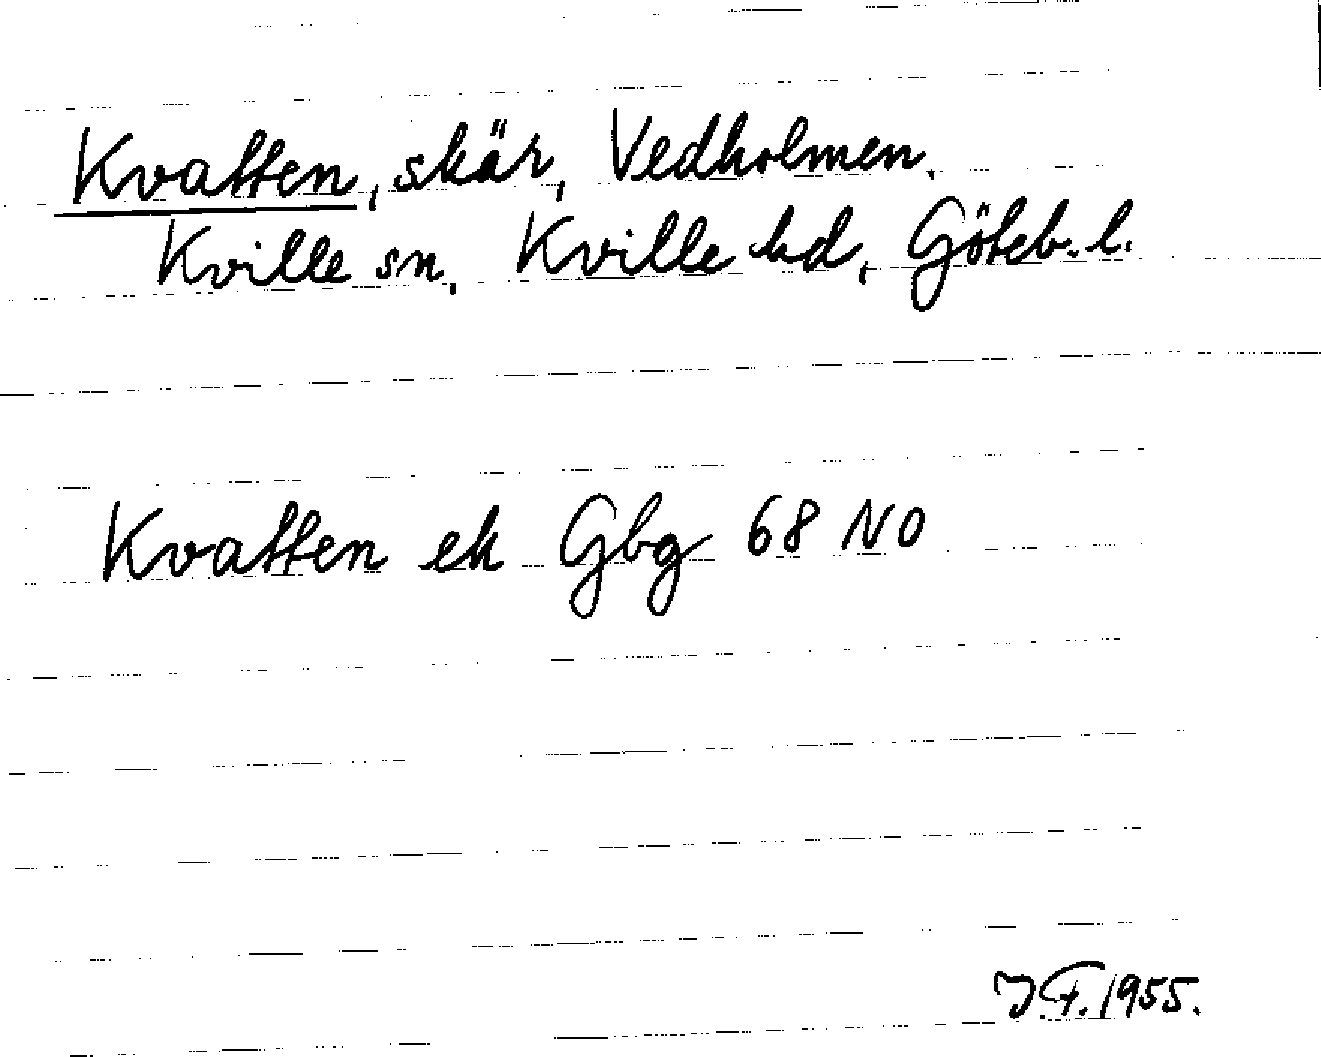 Kvatten, skär, Vedholmen.
Kville sn. Kville hd, Göteb. l.
Kvatten ek Gbg 68 NO
J.F. 1955.